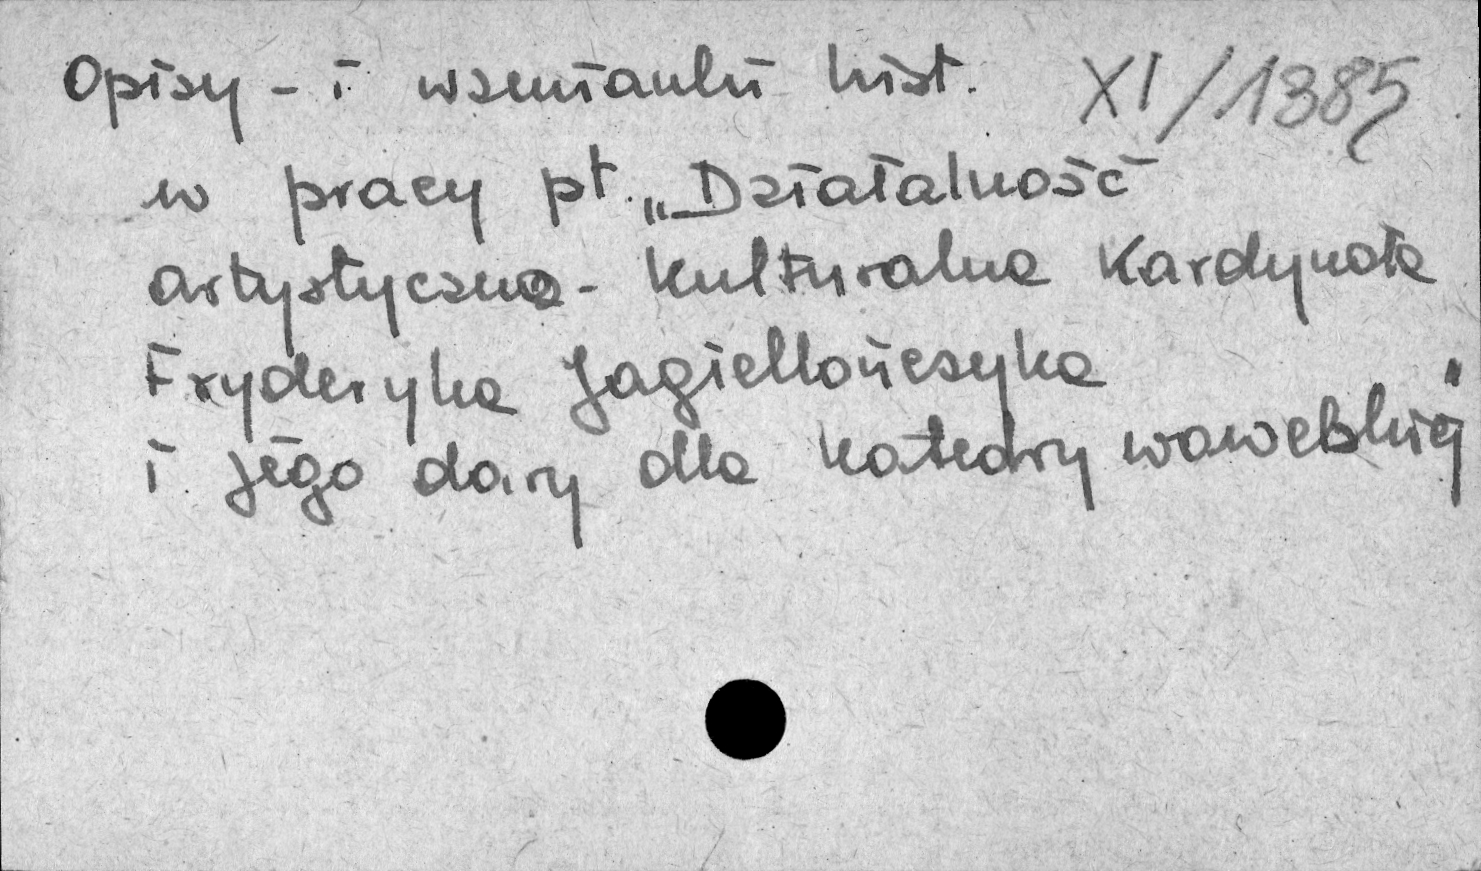 Opisy - i wzmianki hist. XI/1385
w pracy pt. „Działalność
artystyczno - kulturalna Kardynała
Fryderyka Jagiellończyka
i jego dary dla katedry wawelskiej"